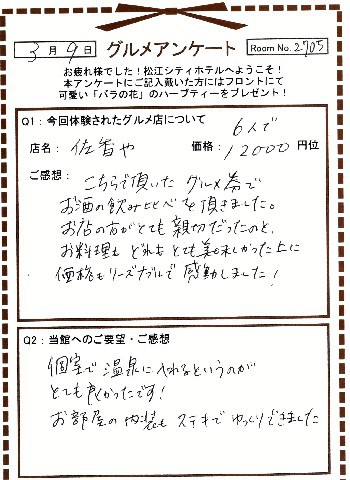 3月9日 グルメアンケート Room No. 2705
お疲れ様でした！松江シティホテルへようこそ！
本アンケートにご記入戴いた方にはフロントにて
可愛い「バラの花」のハーブティーをプレゼント！
Q1：今回体験されたグルメ店について
6人で
店名： 佐香や 価格： 12000 円位
ご感想： こちらで頂いた グルメ券で
お酒の飲み比べを頂きました。
お店の方がとても親切だったのと、
お料理も どれもとても美味しかった上に
価格もリーズナブルで感動しました！
Q2：当館へのご要望・ご感想
個室で温泉に入れるというのが
とても良かったです！
お部屋の内装も ステキで ゆっくりできました